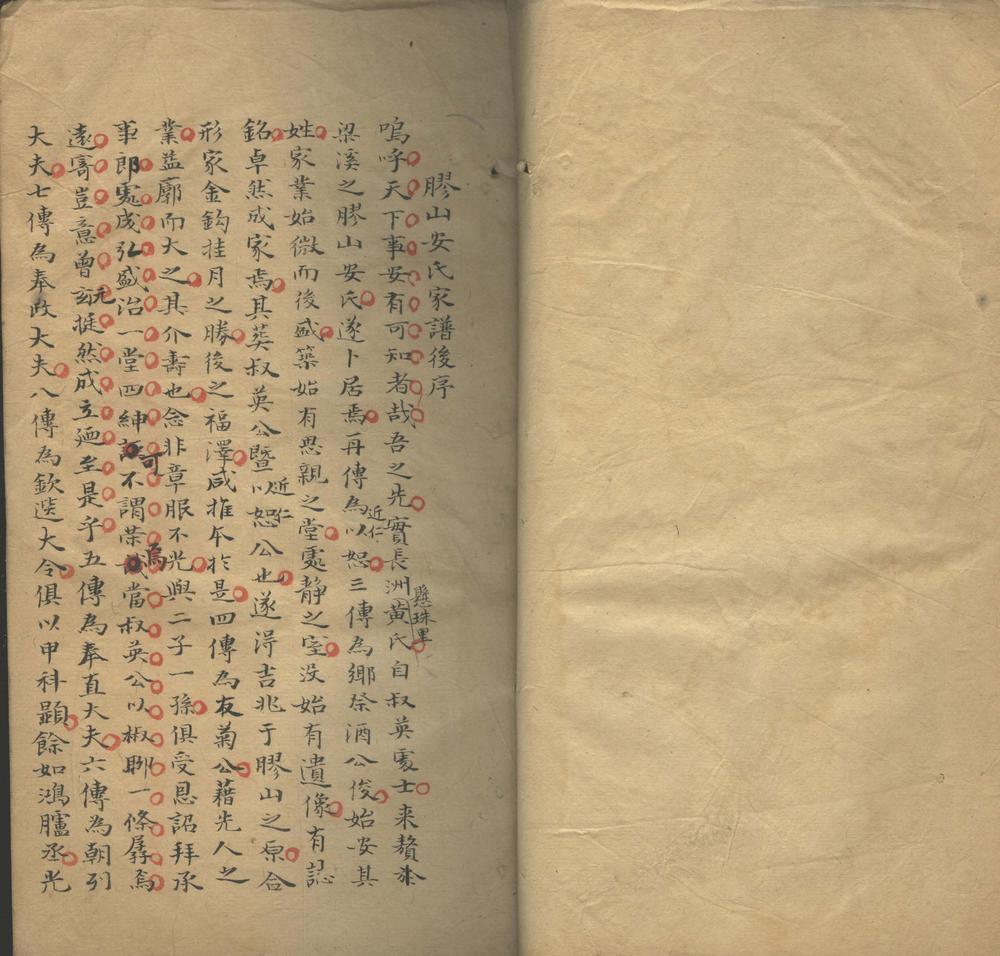 膠山安氏家譜後序
嗚呼天下事安有可知者哉吾之先實長洲黃氏自叔英處士来贅於
懸珠里
梁溪之膠山安氏遂卜居焉再傳為以恕三傳為鄉祭酒公俊始安其
近仁
姓家業始微而後盛築始有思親之堂處静之室没始有遺像有誌
銘卓然成家焉其葬叔英公暨以恕公也遂淂吉兆于膠山之原合
近仁
形家金鈎挂月之勝後之福澤咸推本於是四傳為友菊公藉先人之
業益廓而大之其介壽也念非章服不光與二子一孫俱受恩詔拜承
事郎寔成弘盛治一堂四紳不謂榮當叔英公以椒聊一條孱焉
可
焉
遠寄豈意曾玄挺然成立廼至是乎五傳為奉直大夫六傳為朝列
元
大夫七傳為奉政大夫八傳為欽選大令俱以甲科顯餘如鴻臚丞光